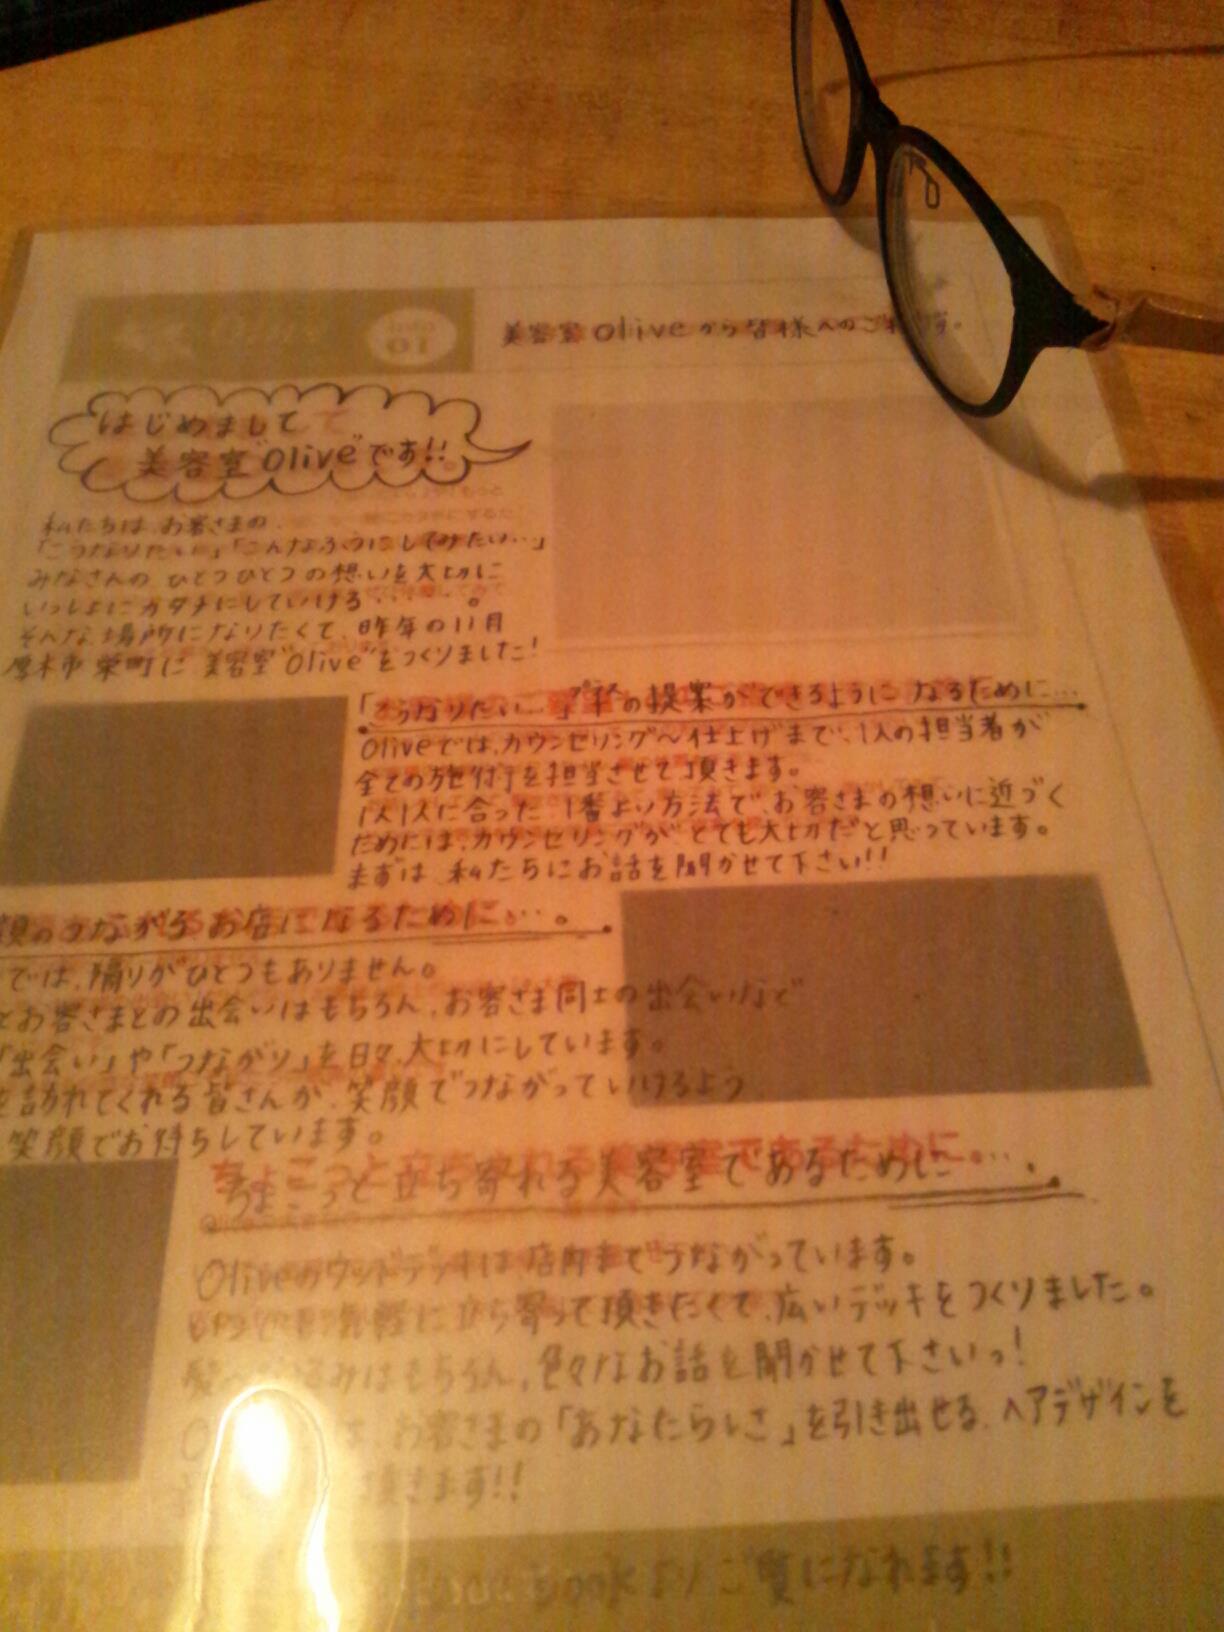 info
01
美容室 olive から皆様へのご
はじめまして
美容室"Olive"です!!
私たちは、お客さまの、
「こうなりたい」「こんなふうにしてみたい…」
みなさんの ひとつひとつの想いを大切に
いっしょにカタチにしていける、、、、。
そんな場所になりたくて、昨年の11月
厚木市 栄町に 美容室"Olive"をつくりました!
「こうなりたい…」の提案ができるように なるために…
Oliveでは、カウンセリング〜仕上げまで、1人の担当者が
全ての施術を担当させて頂きます。
1人1人に合った、1番よい方法で、お客さまの想いに近づく
ためには、カウンセリングが、とても大切だと思っています。
まずは、私たちにお話を聞かせて下さい!!
のつながるお店になるために…。
では、隔りがひとつもありません。
とお客さまとの出会いはもちろん、お客さま同士の出会いなど
「出会い」や「つながり」を日々、大切にしています。
を訪れてくれる皆さんが、笑顔でつながっていけるよう
笑顔でお待ちしています。
ちょこっと立ち寄れる美容室であるために…。
Oliveのウッドデッキは、店内までつながっています。
気軽に立ち寄って頂きたくて、広いデッキをつくりました。
はもちろん、色々なお話を聞かせて下さいっ!
お客さまの「あなたらしさ」を引き出せる、ヘアデザインを
頂きます!!
book よりご覧になれます!!